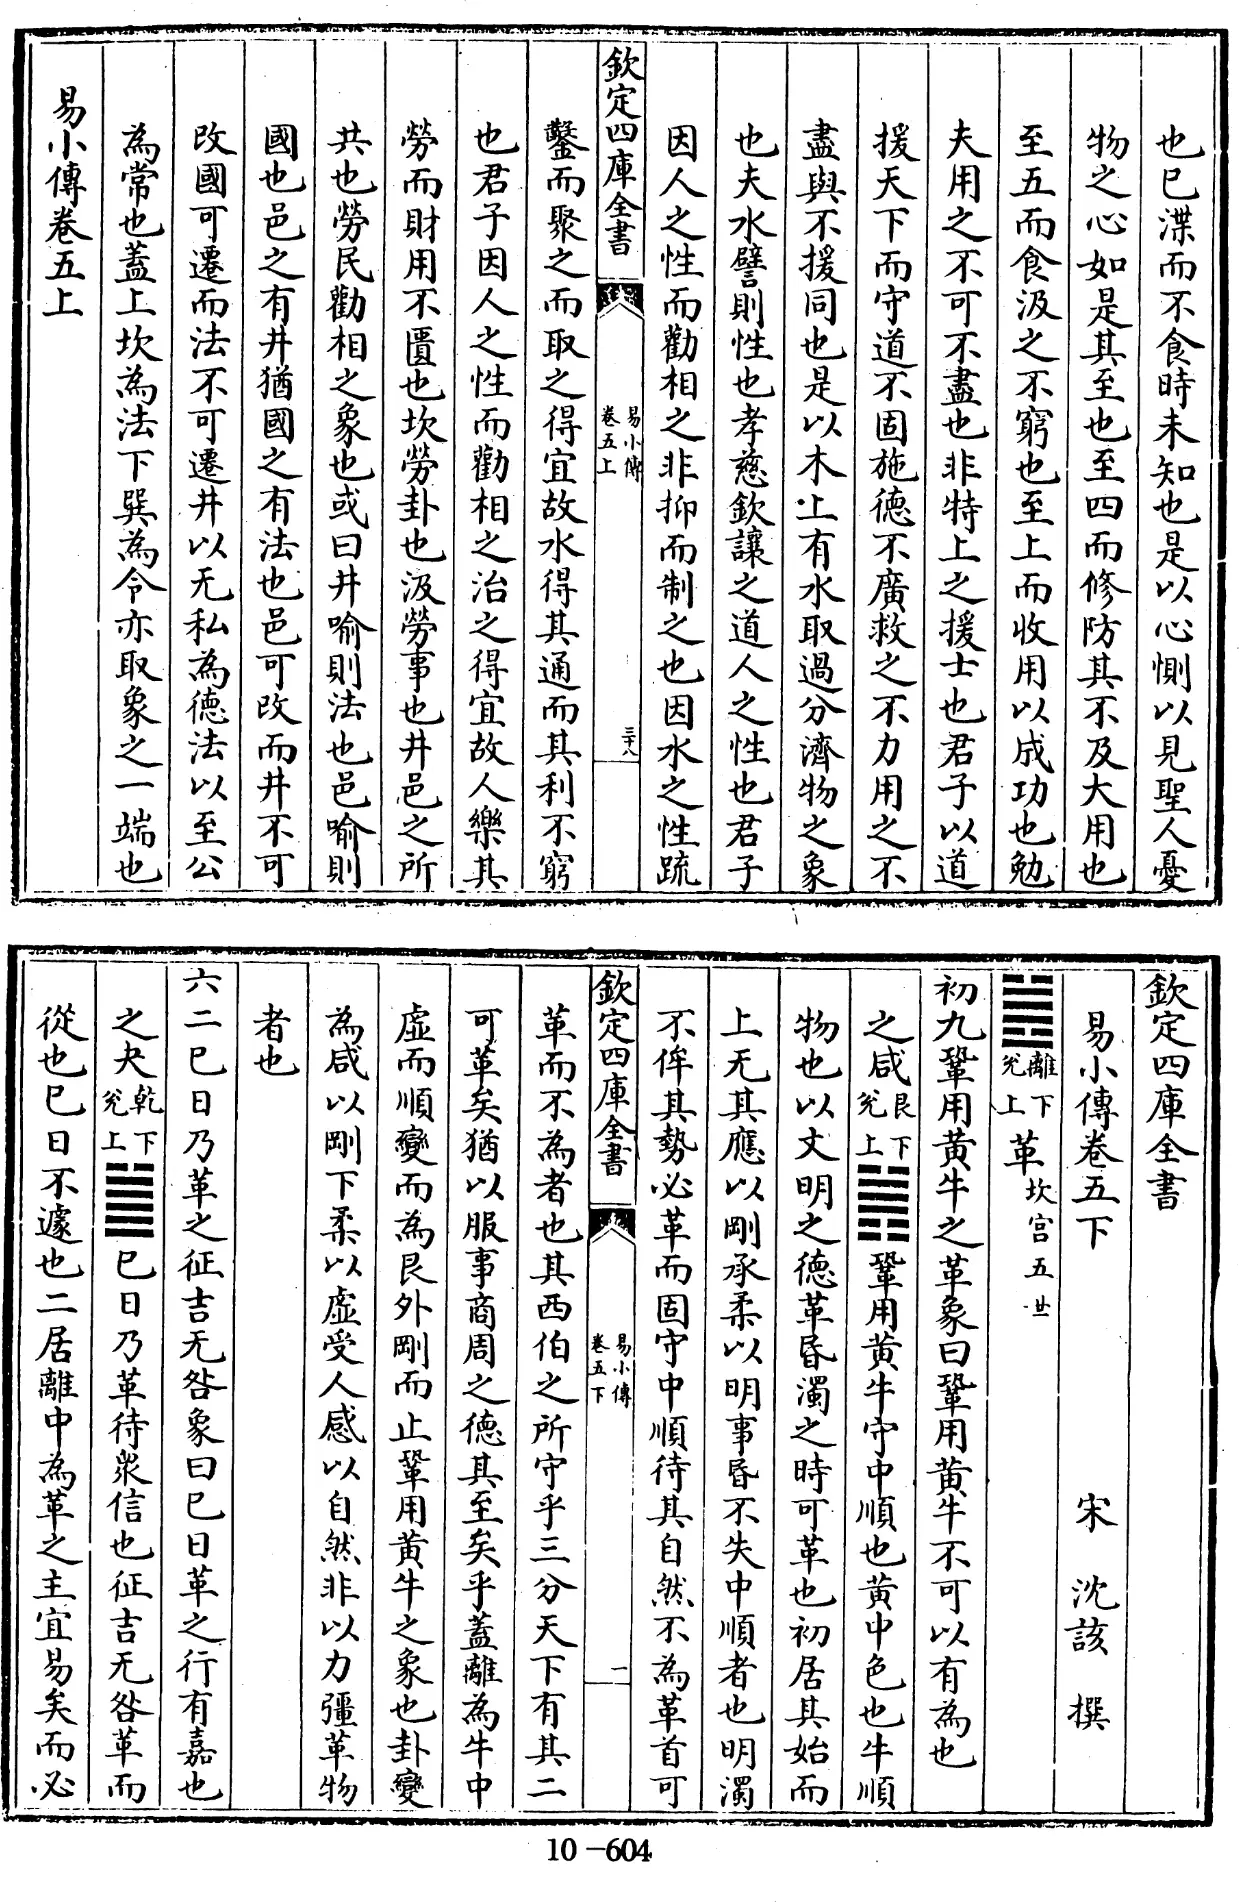 也已渫而不食時未知也是以心惻以見聖人憂
物之心如是其至也至四而修防其不及大用也
至五而食汲之不窮也至上而收用以成功也勉
夫用之不可不盡也非特上之援士也君子以道
援天下而守道不固施德不廣救之不力用之不
盡與不援同也是以木上有水取過分濟物之象
也夫水譬則性也孝慈欽讓之道人之性也君子
因人之性而勸相之非抑而制之也因水之性疏
欽定四庫全書
易小傳
卷五上
三十八
鑿而聚之而取之得宜故水得其通而其利不窮
也君子因人之性而勸相之治之得宜故人樂其
勞而財用不匱也坎勞卦也汲勞事也井邑之所
共也勞民勸相之象也或曰井喻則法也邑喻則
國也邑之有井猶國之有法也邑可改而井不可
改國可遷而法不可遷井以无私為德法以至公
為常也蓋上坎為法下巽為令亦取象之一端也
易小傳卷五上
欽定四庫全書
易小傳卷五下
宋 沈該 撰
離下兊上 革 坎宮五世
初九鞏用黃牛之革象曰鞏用黃牛不可以有為也
之咸 艮下兊上 鞏用黃牛守中順也黃中色也牛順
物也以文明之德革昏濁之時可革也初居其始而
上无其應以剛承柔以明事昏不失中順者也明濁
不侔其勢必革而固守中順待其自然不為革首可
欽定四庫全書
易小傳
卷五下
二
革而不為者也其西伯之所守乎三分天下有其二
可革矣猶以服事商周之德其至矣乎蓋離為牛中
虛而順變而為艮外剛而止鞏用黃牛之象也卦變
為咸以剛下柔以虛受人感以自然非以力彊革物
者也
六二巳日乃革之征吉无咎象曰巳日革之行有嘉也
之夬 乾下兊上 巳日乃革待衆信也征吉无咎革而
從也巳日不遽也二居離中為革之主宜易矣而必
10-604